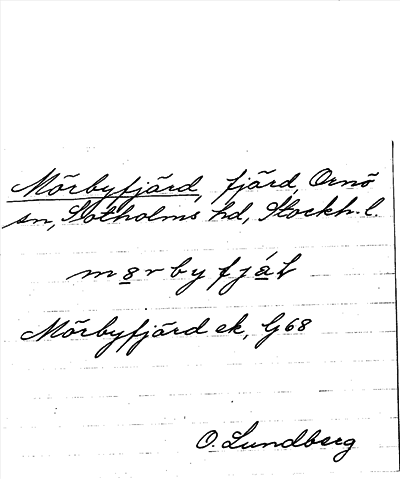 Mörbyfjärd, fjärd, Ornö
sn, Sotholms hd, Stockh. l.
mørbyfjáƚ
Mörbyfjärd ek, G68
O. Lundberg